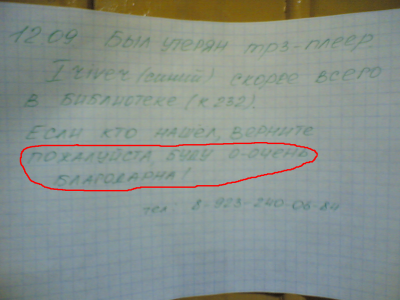 12.09 был утерян mp3-плеер
I river (синий) скорее всего
в библиотеке (к 232).
Если кто нашел, верните
пожалуйста, буду о-очень
благодарна!
тел: 8-923-240-06-84